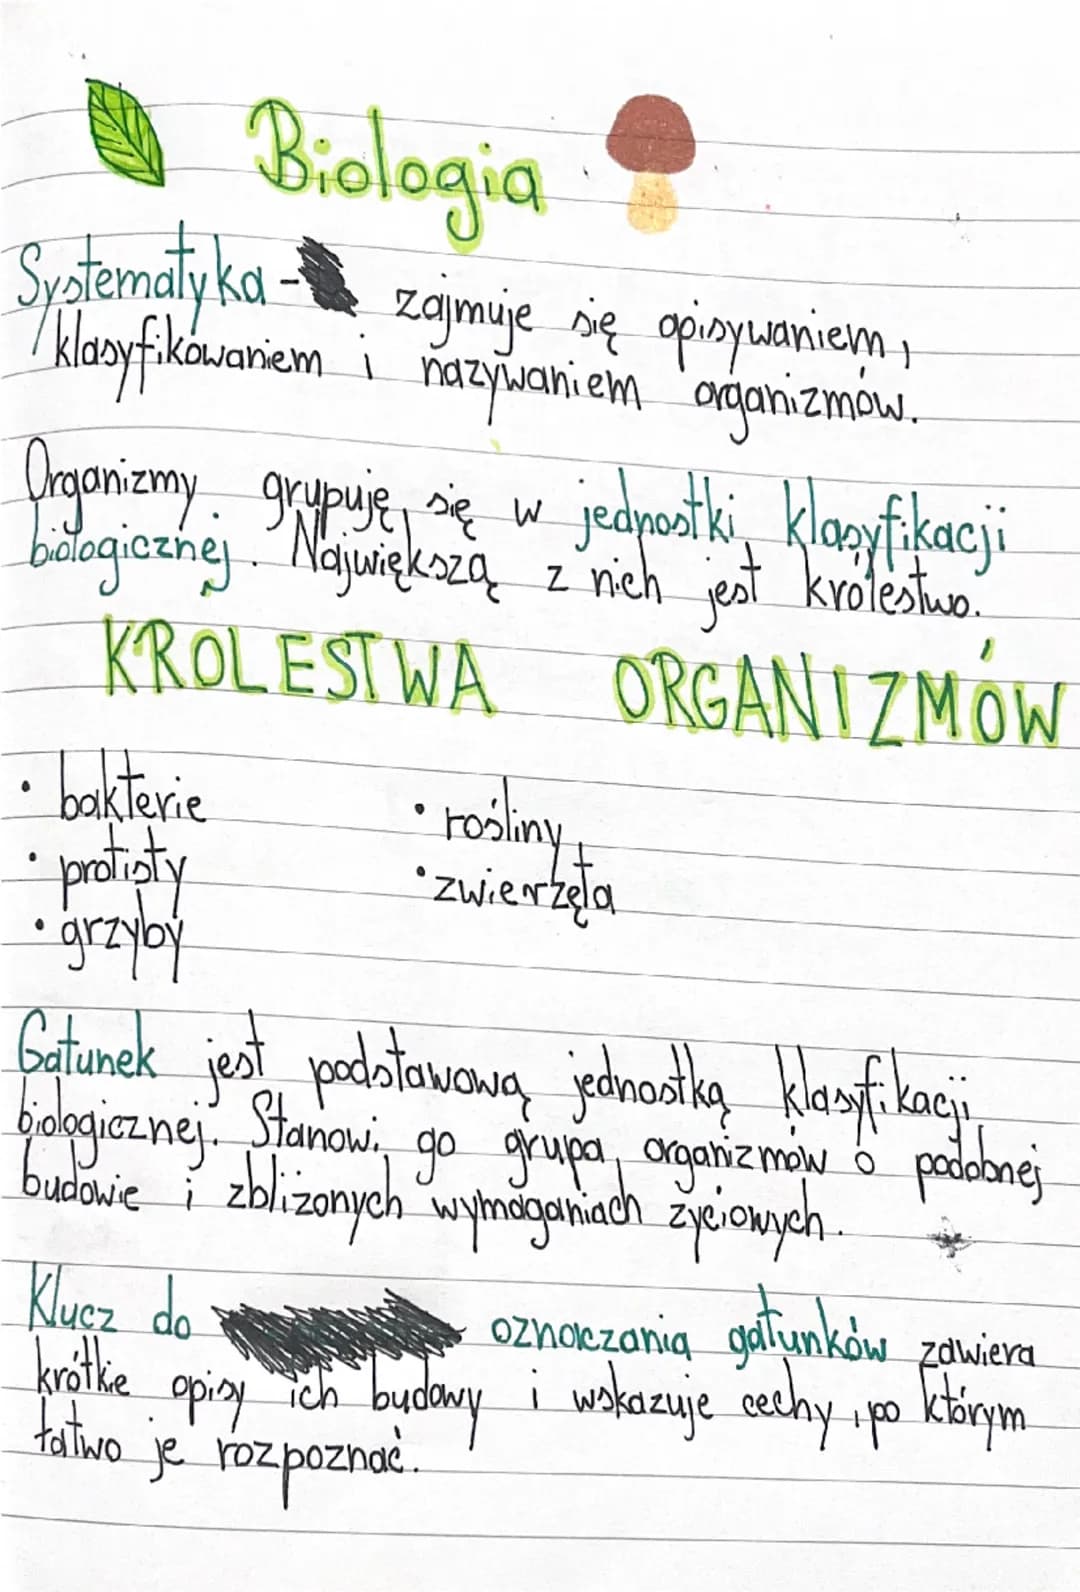 Biologia
Systematyka - zajmuje się opisywaniem,
klasyfikowaniem i nazywaniem organizmów.
Organizmy grupuję się w jednostki klasyfikacji
biologicznej. Największą z nich jest królestwo.
KRÓLESTWA ORGANIZMÓW
• bakterie
• protisty
• grzyby
• rośliny
• zwierzęta
Gatunek jest podstawową jednostką klasyfikacji
biologicznej. Stanowi go grupa organizmów o podobnej
budowie i zbliżonych wymaganiach życiowych.
Klucz do oznaczania gatunków zawiera
krótkie opisy ich budowy i wskazuje cechy, po którym
łatwo je rozpoznać.